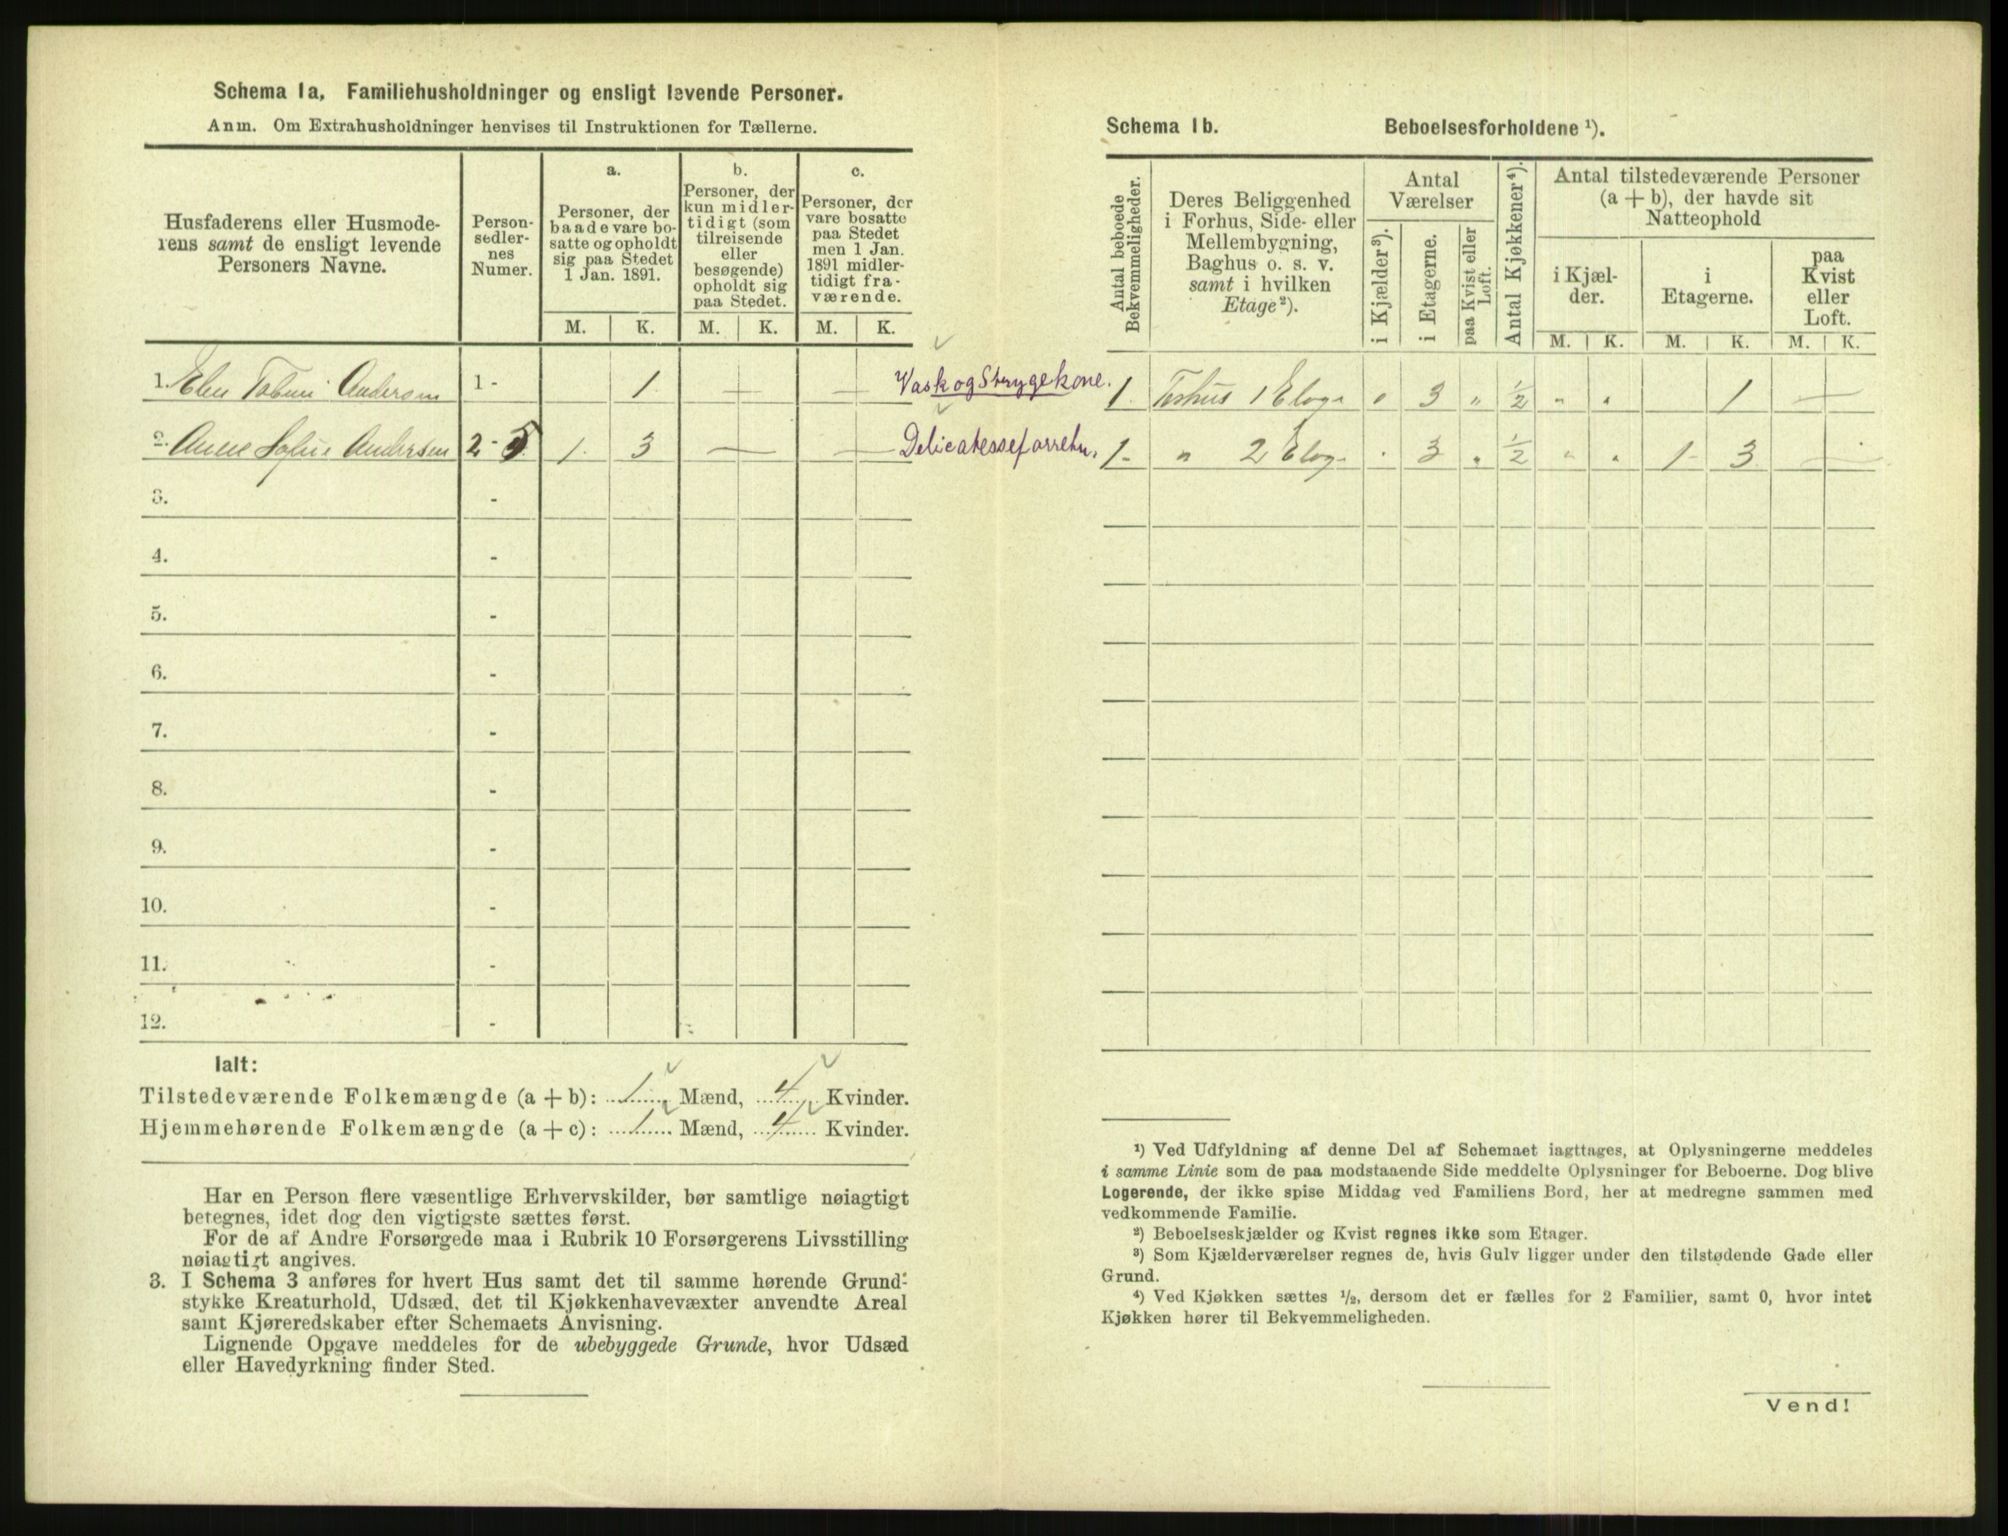 Schema 1a. Familiehusholdninger og ensligt levende Personer.
Anm. Om Extrahusholdninger henvises til Instruktionen for Tællerne.
Husfaderens eller Husmode-
rens samt de ensligt levende
Personers Navne.
Person-
sedler-
nes
Numer.
a.
Personer, der
baade vare bo-
satte og opholdt
sig paa Stedet
1 Jan. 1891.
b.
Personer, der
kun midler-
tidigt (som
tilreisende
eller
besøgende)
opholdt sig
paa Stedet.
c.
Personer, der
vare bosatte
paa Stedet
men 1 Jan.
1891 midler-
tidigt fra-
værende.
M. K. M. K. M. K.
1. Andersen 1 - 1 Vask og Strygekone.
2. Anne Andersen 2 - 5 1 3 Delicatesseforretn.
3. -
4. -
5. -
6. -
7. -
8. -
9. -
10. -
11. -
12. -
Ialt:
Tilstedeværende Folkemængde (a + b): 1 Mænd, 4 Kvinder.
Hjemmehørende Folkemængde (a + c): 1 Mænd, 4 Kvinder.
Har en Person flere væsentlige Erhvervskilder, bør samtlige nøiagtigt
betegnes, idet dog den vigtigste sættes først.
For de af Andre Forsørgede maa i Rubrik 10 Forsørgerens Livsstilling
nøiagtigt angives.
3. I Schema 3 anføres for hvert Hus samt det til samme hørende Grund-
stykke Kreaturhold, Udsæd, det til Kjøkkenhavevæxter anvendte Areal
samt Kjøreredskaber efter Schemaets Anvisning.
Lignende Opgave meddeles for de ubebyggede Grunde, hvor Udsæd
eller Havedyrkning finder Sted.
Schema 1b. Beboelsesforholdene ¹).
Antal beboede
Bekvemmeligheder.
Deres Beliggenhed
i Forhus, Side- eller
Mellembygning,
Baghus o. s. v.
samt i hvilken
Etage²).
Antal
Værelser
i Kjælder³).
i Etagerne.
paa Kvist eller
Loft.
Antal Kjøkkener⁴).
Antal tilstedeværende Personer
(a + b), der havde sit
Natteophold
i Kjæl-
der.
i
Etagerne.
paa
Kvist
eller
Loft.
M. K. M. K. M. K.
1 Forhus 1 Etage " 3 " ½ " " 1
1 " 2 Etage " 3 " ½ " " 1 3
¹) Ved Udfyldning af denne Del af Schemaet iagttages, at Oplysningerne meddeles
i samme Linie som de paa modstaaende Side meddelte Oplysninger for Beboerne. Dog blive
Logerende, der ikke spise Middag ved Familiens Bord, her at medregne sammen med
vedkommende Familie.
²) Beboelseskjælder og Kvist regnes ikke som Etager.
³) Som Kjælderværelser regnes de, hvis Gulv ligger under den tilstødende Gade eller
Grund.
⁴) Ved Kjøkken sættes ½, dersom det er fælles for 2 Familier, samt 0, hvor intet
Kjøkken hører til Bekvemmeligheden.
Vend!